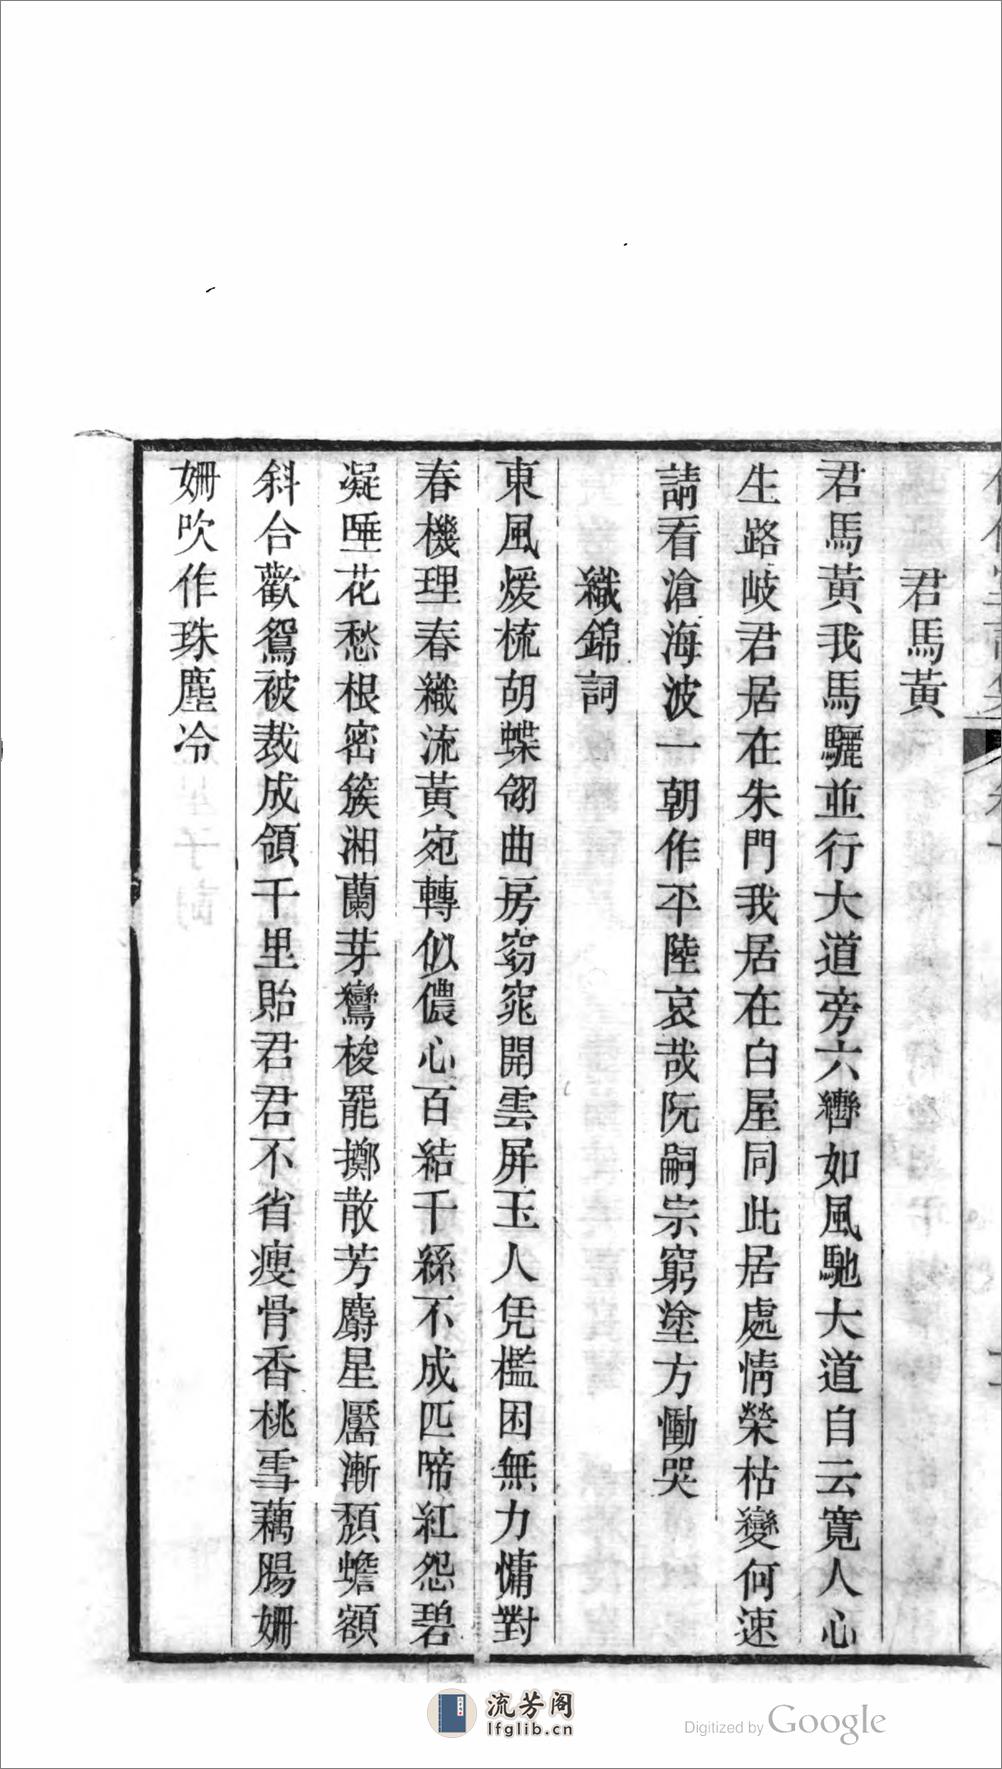 君馬黃
君馬黃我馬驪並行大道旁六轡如風馳大道自云寬人心
生路岐君居在朱門我居在白屋同此居處情榮枯變何速
請看滄海波一朝作平陸哀哉阮嗣宗窮塗方慟哭
織錦詞
東風煖梳胡蝶翎曲房窈窕開雲屏玉人凭檻困無力慵對
春機理春織流黃宛轉似儂心百結千絲不成匹啼紅怨碧
凝唾花愁根密簇湘蘭芽鸞梭罷擲散芳麝星靨漸頹蟾額
斜合歡鴛被裁成領千里貽君君不省瘦骨香桃雪藕腸姍
姍吹作珠塵冷
流芳阁
lfglib.cn
Digitized by Google